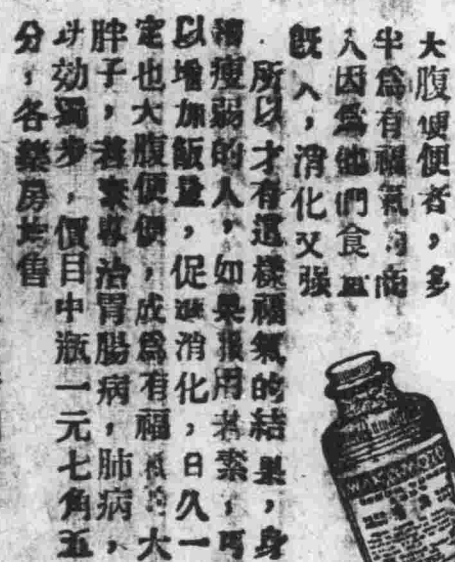 大腹便便者，多
半爲有福氣的商
人因爲他們食量
既人，消化又强
，所以才有這樣福氣的結果，身
體瘦弱的人，如果服用若素，可
以增加飯量，促進消化，日久一
定也大腹便便，成爲有福氣的大
胖子，若素專治胃腸病，肺病，
功効獨步，價目中瓶一元七角五
分，各藥房均售
WAKAMOTO